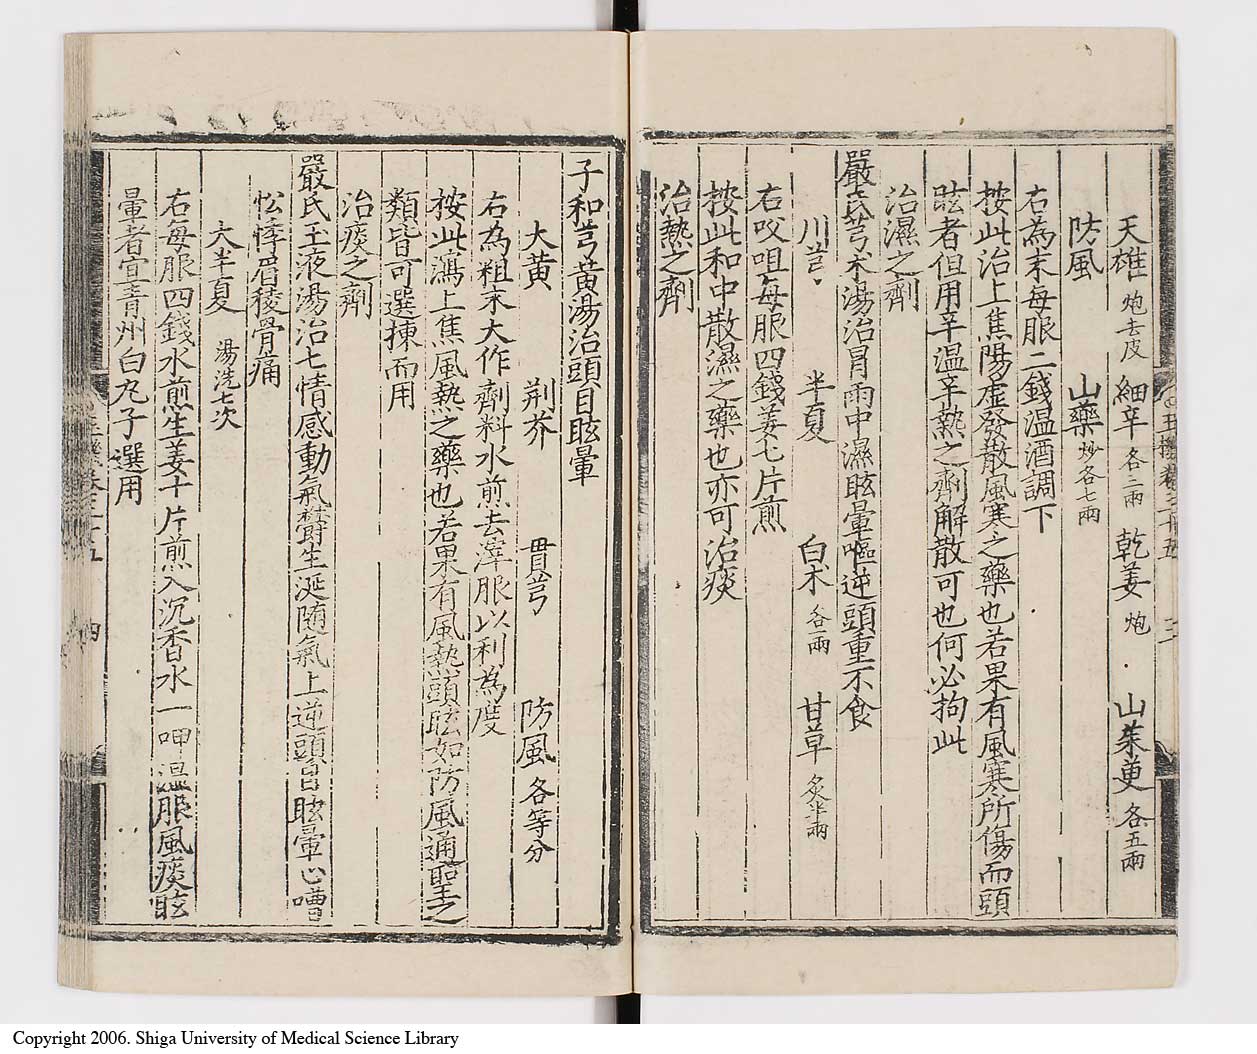 天雄炮去皮 細辛各二兩 乾姜炮 山茱萸各五兩
防風 山藥炒各七兩
右為末每服二錢温酒調下
按此治上焦陽虛發散風寒之藥也若果有風寒所傷而頭
眩者但用辛温辛熱之劑解散可也何必拘此
治濕之劑
嚴氏芎术湯治冐雨中濕眩暈嘔逆頭重不食
川芎 半夏 白术各一兩 甘草炙半兩
右㕮咀每服四錢姜七片煎
按此和中散濕之藥也亦可治痰
治熱之劑
子和芎黃湯治頭目眩暈
大黃 荆芥 貫芎 防風各等分
右為粗末大作劑料水煎去滓服以利為度
按此瀉上焦風熱之藥也若果有風熱頭眩如防風通聖之
類皆可選揀而用
治痰之劑
嚴氏玉液湯治七情感動氣欝生涎随氣上逆頭目眩暈心嘈
忪悸眉稜骨痛
大半夏湯洗七次
右每服四錢水煎生姜十片煎入沉香水一呷温服風痰眩
暈者宜青州白丸子選用
Copyright 2006. Shiga University of Medical Science Library